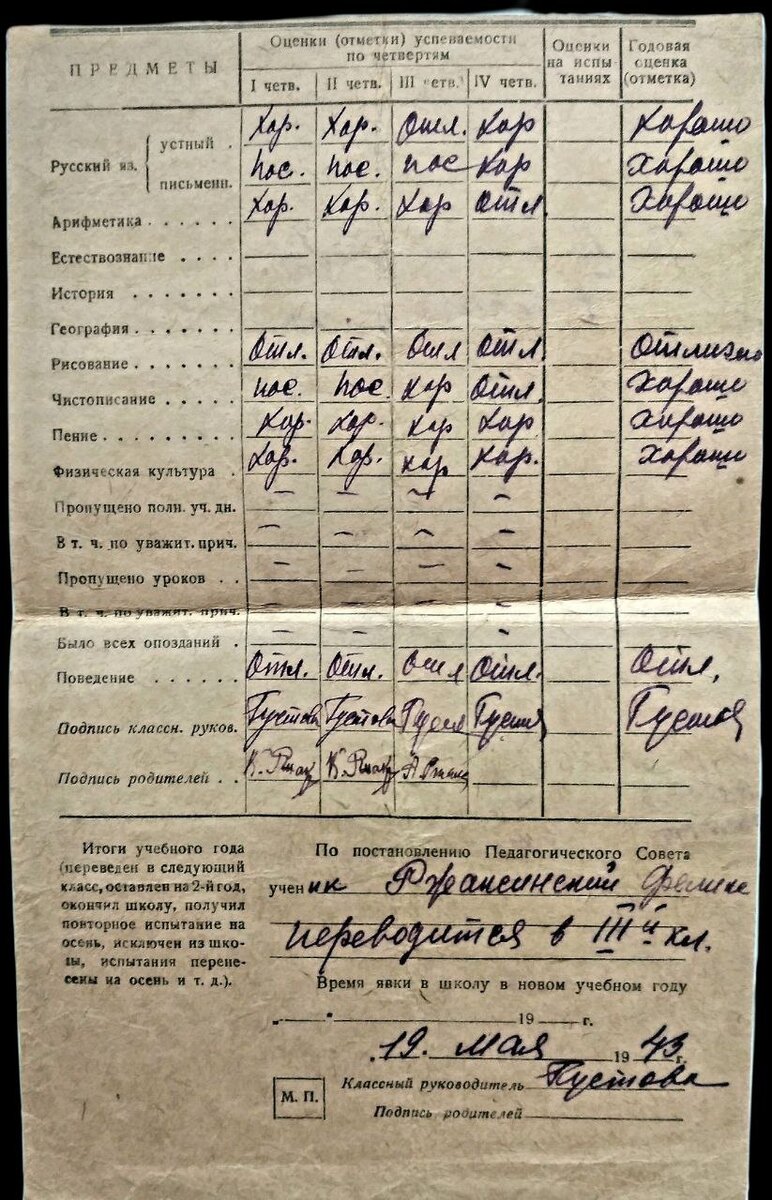 ПРЕДМЕТЫ
Оценки (отметки) успеваемости по четвертям
Оценки на испытаниях
Годовая оценка (отметка)
I четв. II четв. III четв. IV четв.
Русский яз. устный . Хор. Хор. Отл. Хор Хорошо
письменн. пос. пос. пос Хор Хорошо
Арифметика . . . . . . Хор. Хор. Хор Отл. Хорошо
Естествознание . . . .
История . . . . . . .
География . . . . . . .
Рисование . . . . . . . Отл. Отл. Отл Отл. Отлично
Чистописание . . . . . пос. пос. хор Отл. Хорошо
Пение . . . . . . . . . Хор. Хор. хор Хор Хорошо
Физическая культура . Хор. Хор. хор Хор. Хорошо
Пропущено полн. уч. дн. – – – –
В т. ч. по уважит. прич. – – – –
Пропущено уроков . . – – – –
В т. ч. по уважит. прич. – – –
Было всех опозданий . – – –
Поведение . . . . . . Отл. Отл. Отл Отл. Отл.
Подпись классн. руков. Густова Густова
Подпись родителей . .
Итоги учебного года
(переведен в следующий
класс, оставлен на 2-й год,
окончил школу, получил
повторное испытание на
осень, исключен из шко-
лы, испытания перене-
сены на осень и т. д.).
По постановлению Педагогического Совета
ученик
переводится в III й кл.
Время явки в школу в новом учебном году
„ “ 19 г.
19. мая 1943 г.
Классный руководитель Густова
М. П.
Подпись родителей